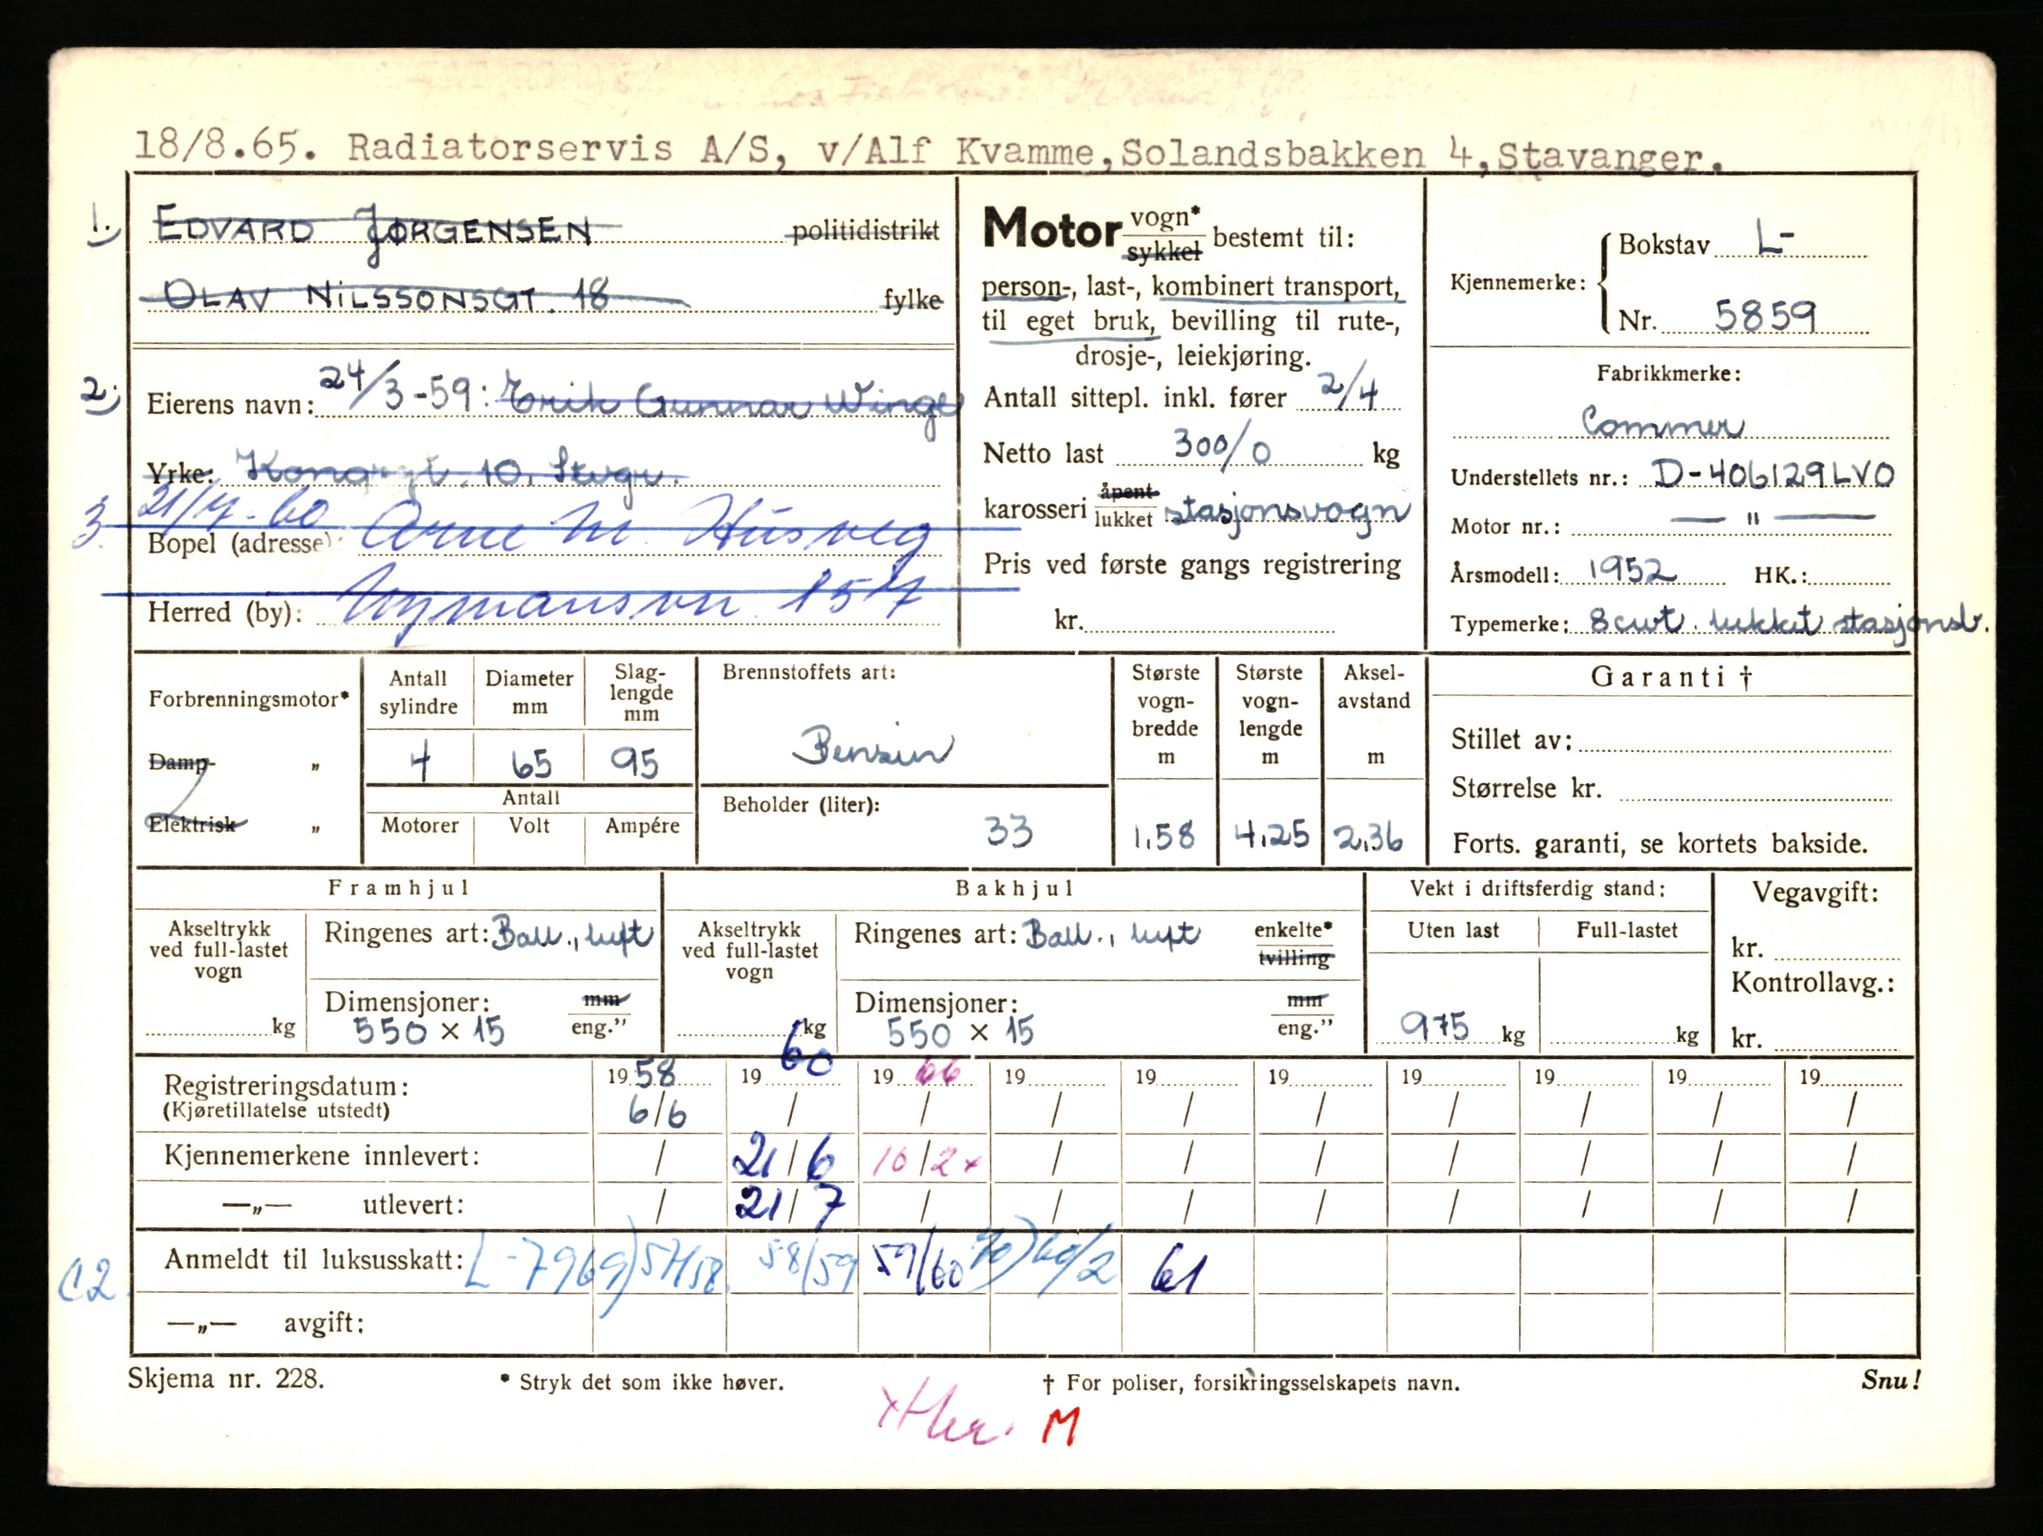 18/8.65. Radiatorservis A/S, v/Alf Kvamme, Solandsbakken 4, Stavanger.
1. EDVARD JØRGENSEN politidistrikt
OLAV NILSSONSGT. 18 fylke
2. Eierens navn: 24/3-59: Erik Gunnar Winge
Yrke: Kongsgt. 10, Stvgr.
3. 21/7-60
Bopel (adresse): Arne M. Husveg
Herred (by): 157
Motor vogn* sykkel bestemt til:
person-, last-, kombinert transport,
til eget bruk, bevilling til rute-,
drosje-, leiekjøring.
Antall sittepl. inkl. fører 2/4
Netto last 300/0 kg
karosseri åpent lukket stasjonsvogn
Pris ved første gangs registrering
kr.
Kjennemerke: Bokstav L-
Nr. 5859
Fabrikkmerke:
Commer
Understellets nr.: D-406129LVO
Motor nr.: — " —
Årsmodell: 1952 HK.:
Typemerke: 8 cwt. lukket stasjonsv.
Forbrenningsmotor*
Damp- „
Elektrisk „
Antall sylindre 4
Diameter mm 65
Slaglengde mm 95
Antall
Motorer Volt Ampére
Brennstoffets art:
Bensin
Beholder (liter):
33
Største vogn-bredde m 1,58
Største vogn-lengde m 4,25
Aksel-avstand m 2,36
Garanti †
Stillet av:
Størrelse kr.
Forts. garanti, se kortets bakside.
Framhjul
Akseltrykk ved full-lastet vogn kg
Ringenes art: Ball., luft
Dimensjoner: mm
550 x 15 eng.”
Bakhjul
Akseltrykk ved full-lastet vogn kg
Ringenes art: Ball., luft enkelte* tvilling
Dimensjoner: mm
550 x 15 eng.”
Vekt i driftsferdig stand:
Uten last Full-lastet
975 kg kg
Vegavgift:
kr.
Kontrollavg.:
kr.
Registreringsdatum: 1958 1960 1966 19 19 19 19 19 19 19
(Kjøretillatelse utstedt) 6/6 / / / / / / / / /
Kjennemerkene innlevert: / 21/6 10/2x / / / / / / /
—„— utlevert: / 21/7 / / / / / / / /
C2. Anmeldt til luksusskatt: L-7969) 57/58. 58/59 59/60 60/2 61
—„— avgift:
Skjema nr. 228. * Stryk det som ikke høver. † For poliser, forsikringsselskapets navn. Snu!
M